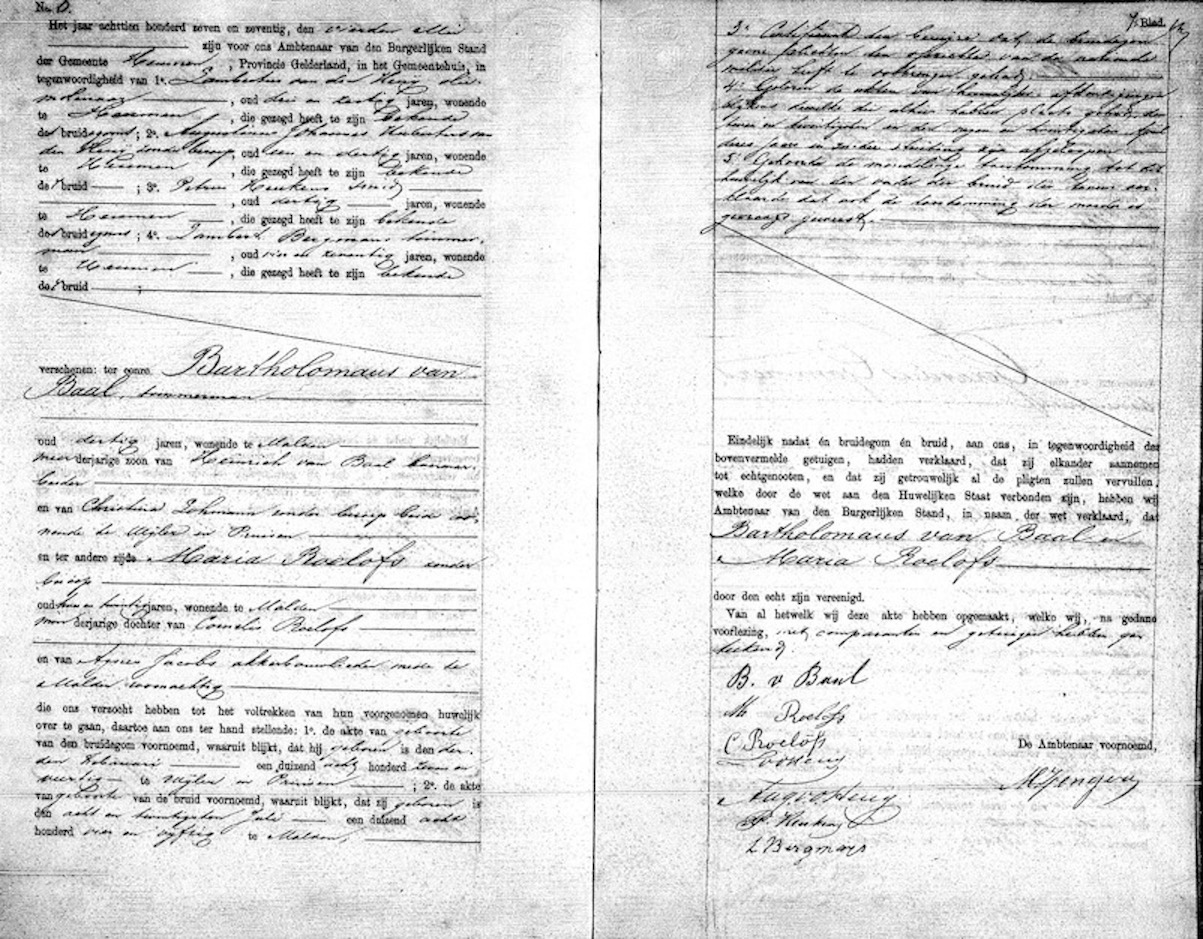 No. 6.
Het jaar achttien honderd zeven en zeventig, den vierden Mei
zijn voor ons Ambtenaar van den Burgerlijken Stand
der Gemeente Heumen, Provincie Gelderland, in het Gemeentehuis, in
tegenwoordigheid van 1e. Lambertus van den Heuij
molenaar, oud drie en dertig jaren, wonende
te Heumen, die gezegd heeft te zijn bekende
des bruidegoms; 2e. Augustinus Johannes Hubertus van
den Heuij zonder beroep, oud een en dertig jaren, wonende
te Heumen, die gezegd heeft te zijn bekende
der bruid; 3e. Petrus Heukens smid
, oud dertig jaren, wonende
te Heumen, die gezegd heeft te zijn bekende
des bruidegoms; 4e. Lambert Bergmans timmer-
man, oud vier en zeventig jaren, wonende
te Heumen, die gezegd heeft te zijn bekende
der bruid;
verschenen: ter eenre Bartholomaus van
Baal, timmerman
oud dertig jaren, wonende te Malden
meerderjarige zoon van Heinrich van Baal
en van Christina Lohmann zonder beroep beide wo-
nende te Wyler in Pruisen
en ter andere zijde Maria Roelofs zonder
beroep
oud twee en twintig jaren, wonende te Malden
minderjarige dochter van Cornelis Roelofs
en van Agnes Jacobs akkerbouwlieden mede te
Malden woonachtig
die ons verzocht hebben tot het voltrekken van hun voorgenomen huwelijk
over te gaan, daartoe aan ons ter hand stellende: 1e. de akte van geboorte
van den bruidegom voornoemd, waaruit blijkt, dat hij geboren is den der-
den Februari een duizend acht honderd zeven en
veertig te Wyler in Pruisen; 2e. de akte
van geboorte van de bruid voornoemd, waaruit blijkt, dat zij geboren is
den acht en twintigsten Juli een duizend acht
honderd vier en vijftig te Malden;
7e Blad.
3e. Certificaat ten bewijze dat de bruidegom
geene plichten ten opzichte van de nationale
militie heeft te volbrengen gehad
4e. Gezien de akten van huwelijks afkondigingen
blijkens dewelke die alhier hebben plaats gehad den
twee en twintigsten en den negen en twintigsten April
dezes jaars en zonder stuiting zijn afgeloopen
5e. Gehoord de mondelinge toestemming tot dit
huwelijk van den vader der bruid die tevens ver-
klaarde dat ook de toestemming der moeder is
gevraagd geweest
Eindelijk nadat én bruidegom én bruid, aan ons, in tegenwoordigheid der
bovenvermelde getuigen, hadden verklaard, dat zij elkander aannemen
tot echtgenooten, en dat zij getrouwelijk al de pligten zullen vervullen,
welke door de wet aan den Huwelijken Staat verbonden zijn, hebben wij
Ambtenaar van den Burgerlijken Stand, in naam der wet verklaard, dat
Bartholomaus van Baal en
Maria Roelofs
door den echt zijn vereenigd.
Van al hetwelk wij deze akte hebben opgemaakt, welke wij, na gedane
voorlezing, met comparanten en getuigen hebben ge-
teekend
B. v Baal
M Roelofs
C Roelofs
De Ambtenaar voornoemd,
P. Heukens
L Bergmans